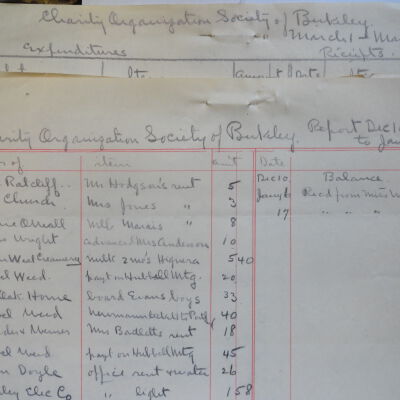 Charity Organization Society of Berkley.
" March 1 - Ma
Expenditures Receipts.
Date amount Date
arity Organization Society of Berkley. Report Dec 10
to Jan
of item am't Date
Ratcliff.. Mr Hodgson's rent 5 Dec 10. Balance.
Church Mrs Jones " 3 Jan 6 Rec'd from Miss W
O'Neall 8 17 " " "
Wright advanced Mrs Anderson 10
West Creamery milk 2 mo's Higuera 5 40
el Weed. pay't on Hubbell Mtg. 20
Home board Evans boys 33
el Weed 40
Mrs Badletts rent 18
el Weed pay't on Hubbell Mtg 45
n Doyle office rent & water 26
ley Elec Co " light 1 58